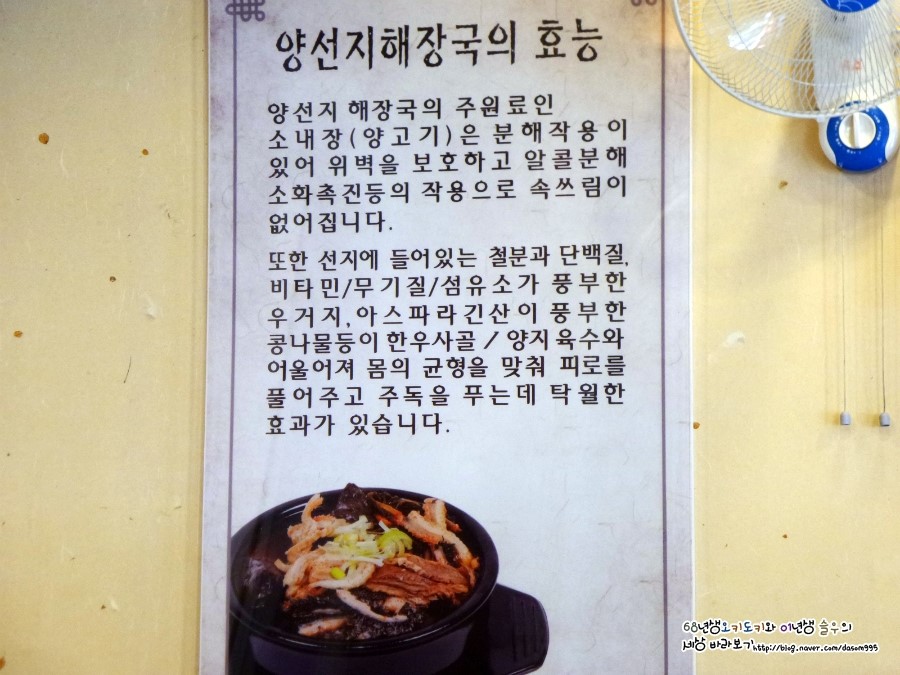 양선지해장국의 효능
양선지 해장국의 주원료인
소내장(양고기)은 분해작용이
있어 위벽을 보호하고 알콜분해
소화촉진등의 작용으로 속쓰림이
없어집니다.
또한 선지에 들어있는 철분과 단백질,
비타민/무기질/섬유소가 풍부한
우거지,아스파라긴산이 풍부한
콩나물등이한우사골 / 양지육수와
어울어져 몸의 균형을 맞춰 피로를
풀어주고 주독을 푸는데 탁월한
효과가 있습니다.
68년생오키도키와 01년생 슬우의
세상 바라보기http://blog.naver.com/dasom995